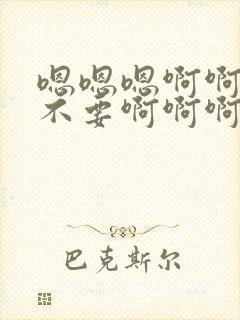 嗯嗯嗯啊啊
不要啊啊啊
巴克斯尔